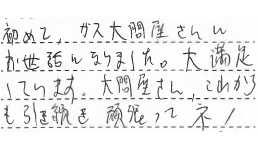 初めて、ガス大問屋さんに
お世話になりました。大満足
しています。大問屋さん、これから
も引き続き頑張って ネ!